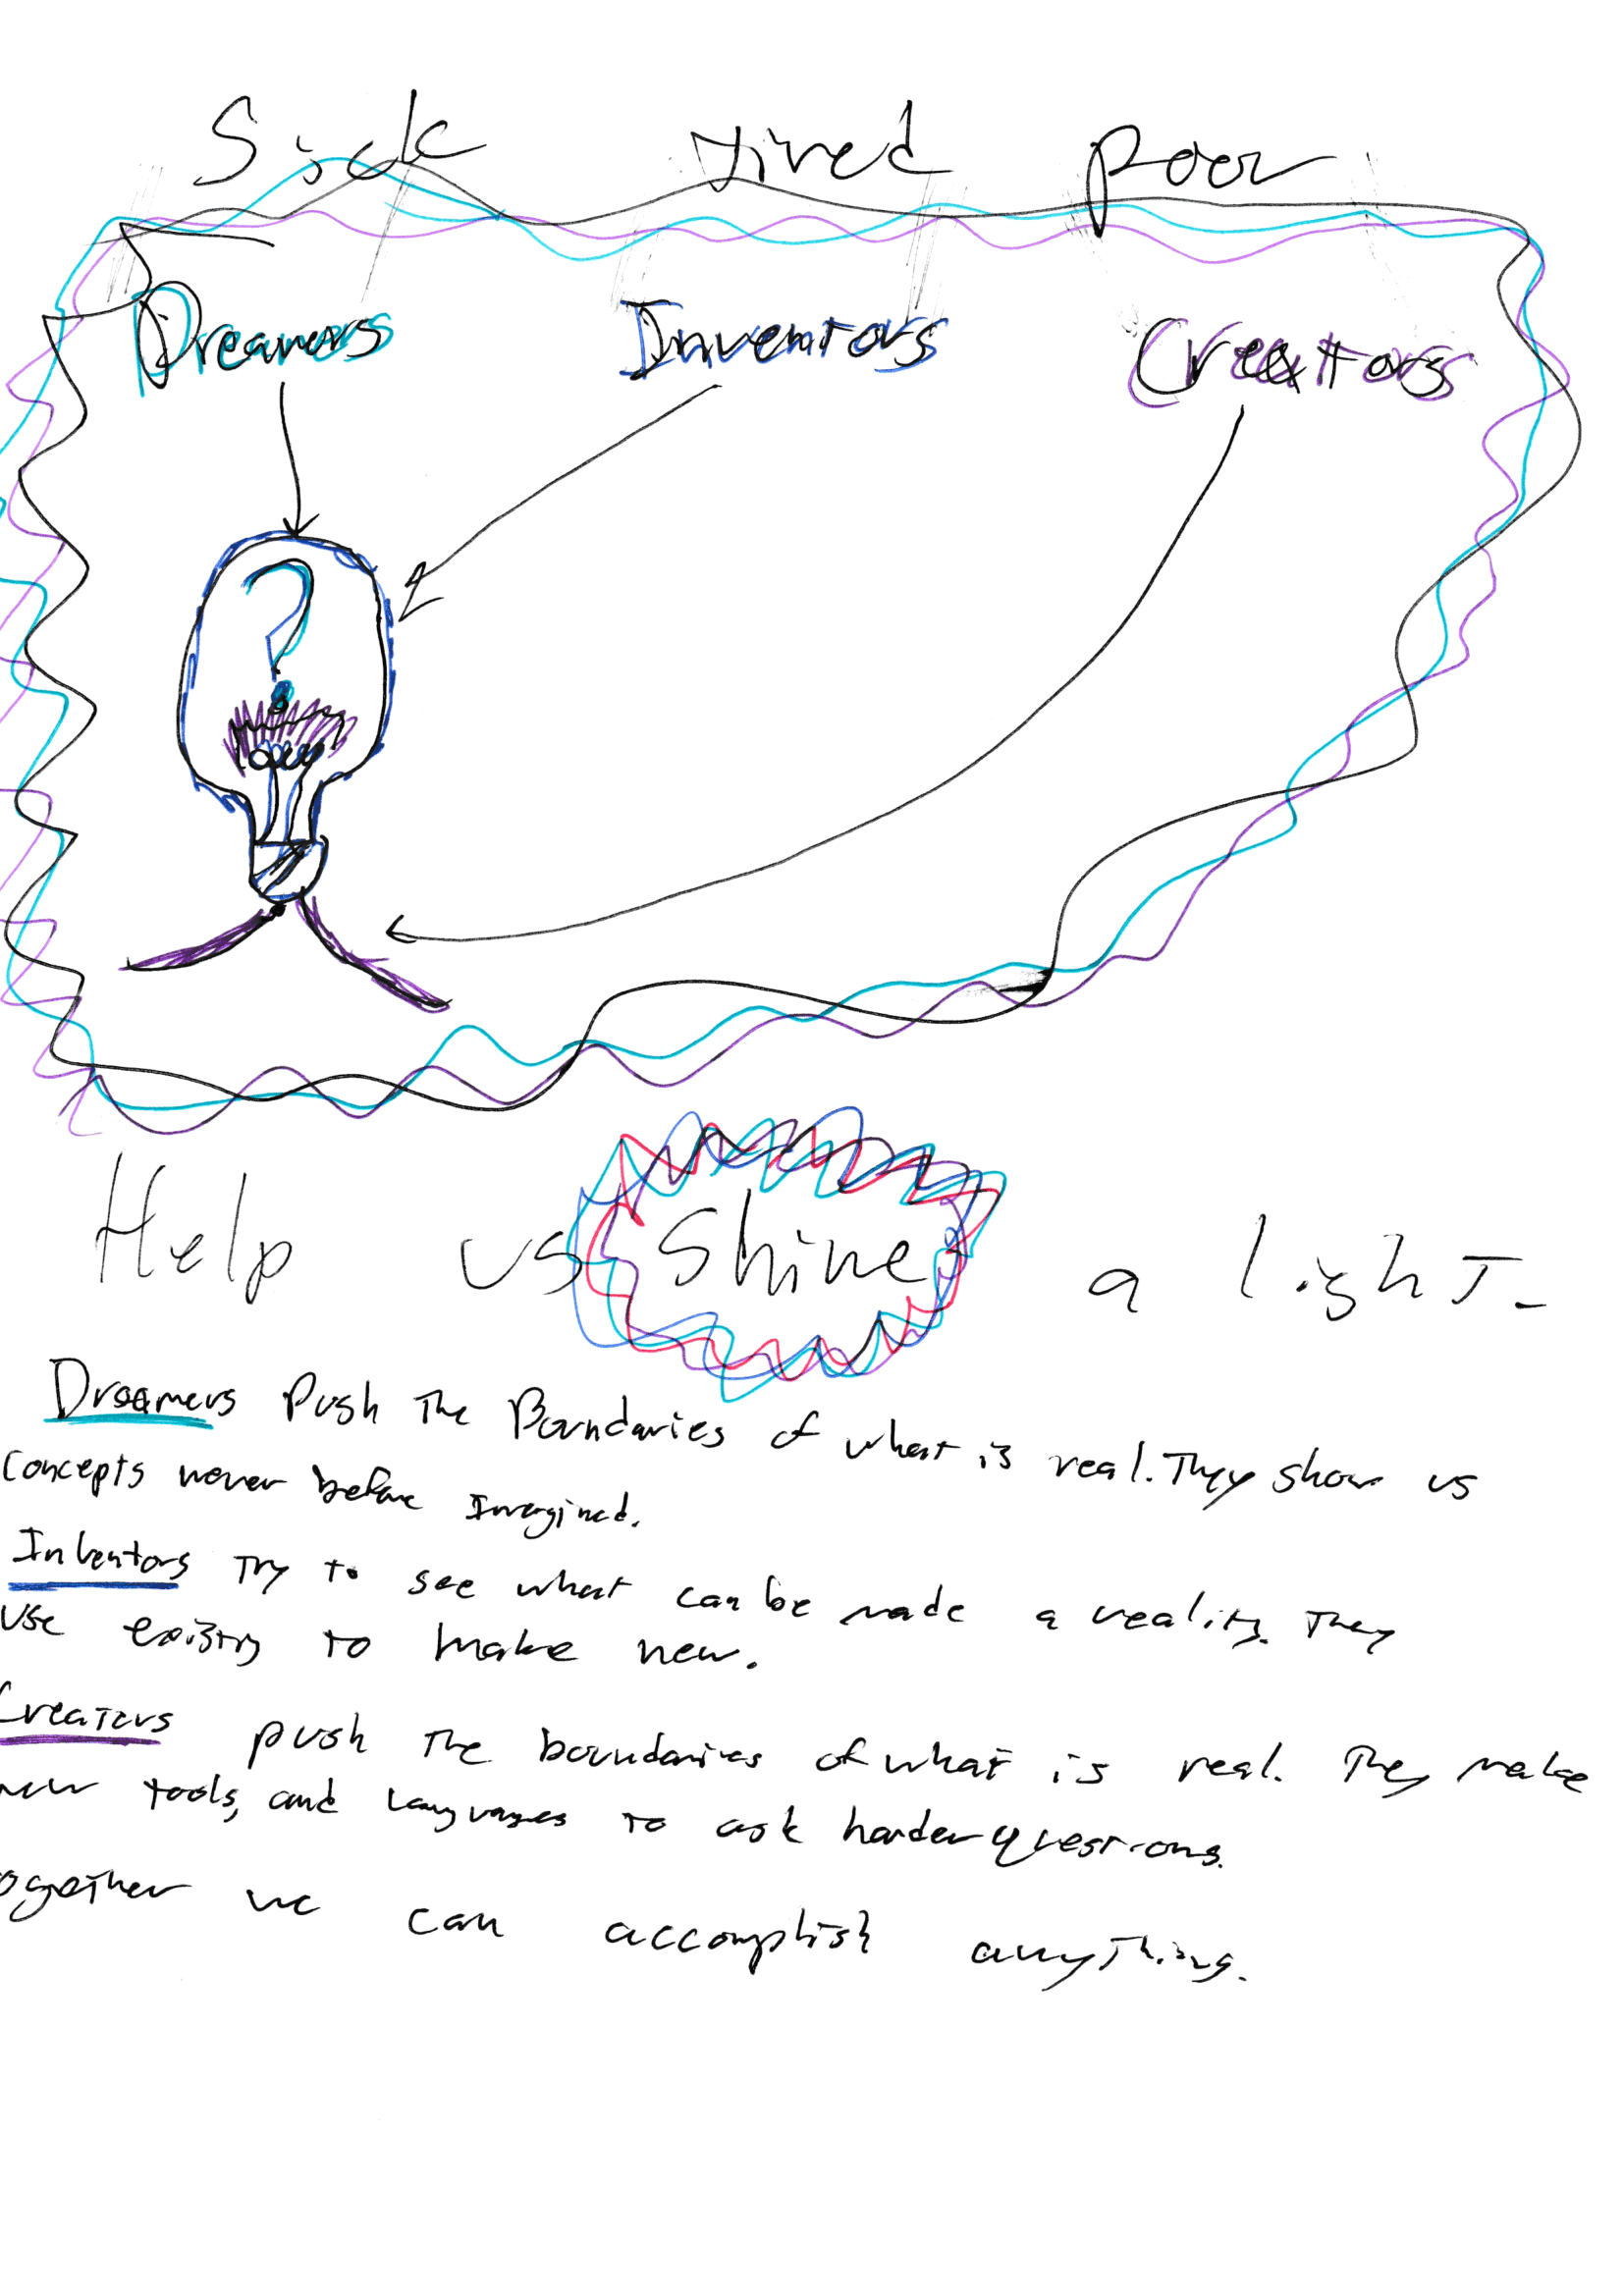 Sick Tired Poor
Dreamers Inventors Creators
?
Help us shine a light-
Dreamers Push The Boundaries of what is real. They show us
concepts never before Imagined.
Inventors Try to see what can be made a reality. They
use existing to make new.
Creators push the boundaries of what is real. They make
new tools, and languages to ask harder questions.
ogether we can accomplish anything.